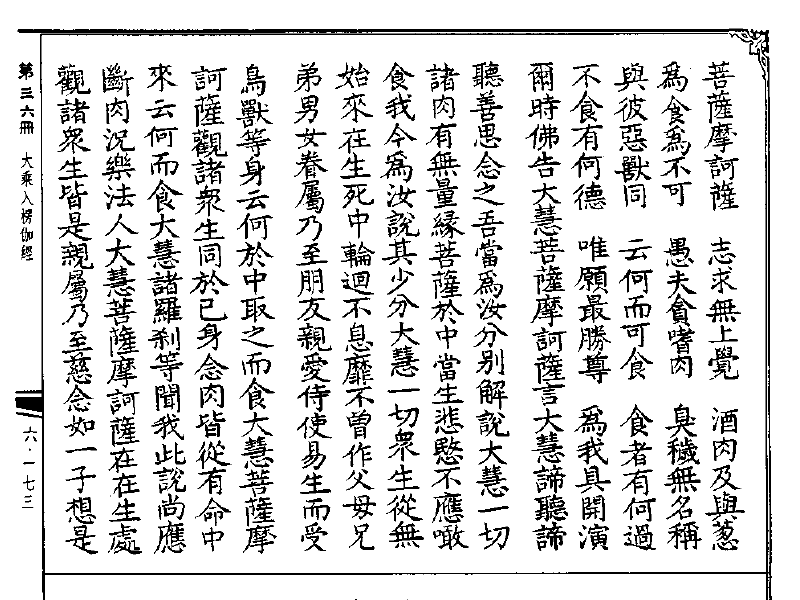 菩薩摩訶薩　志求無上覺　酒肉及與葱
為食為不可　愚夫貪嗜肉　臭穢無名稱
與彼惡獸同　云何而可食　食者有何過
不食有何德　唯願最勝尊　為我具開演
爾時佛告大慧菩薩摩訶薩言大慧諦聽諦
聽善思念之吾當為汝分別解說大慧一切
諸肉有無量緣菩薩於中當生悲愍不應噉
食我今為汝說其少分大慧一切眾生從無
始來在生死中輪迴不息靡不曾作父母兄
弟男女眷屬乃至朋友親愛侍使易生而受
鳥獸等身云何於中取之而食大慧菩薩摩
訶薩觀諸眾生同於己身念肉皆從有命中
來云何而食大慧諸羅剎等聞我此說尚應
斷肉況樂法人大慧菩薩摩訶薩在在生處
觀諸眾生皆是親屬乃至慈念如一子想是
第三六冊　大乘入楞伽經
六·一七三